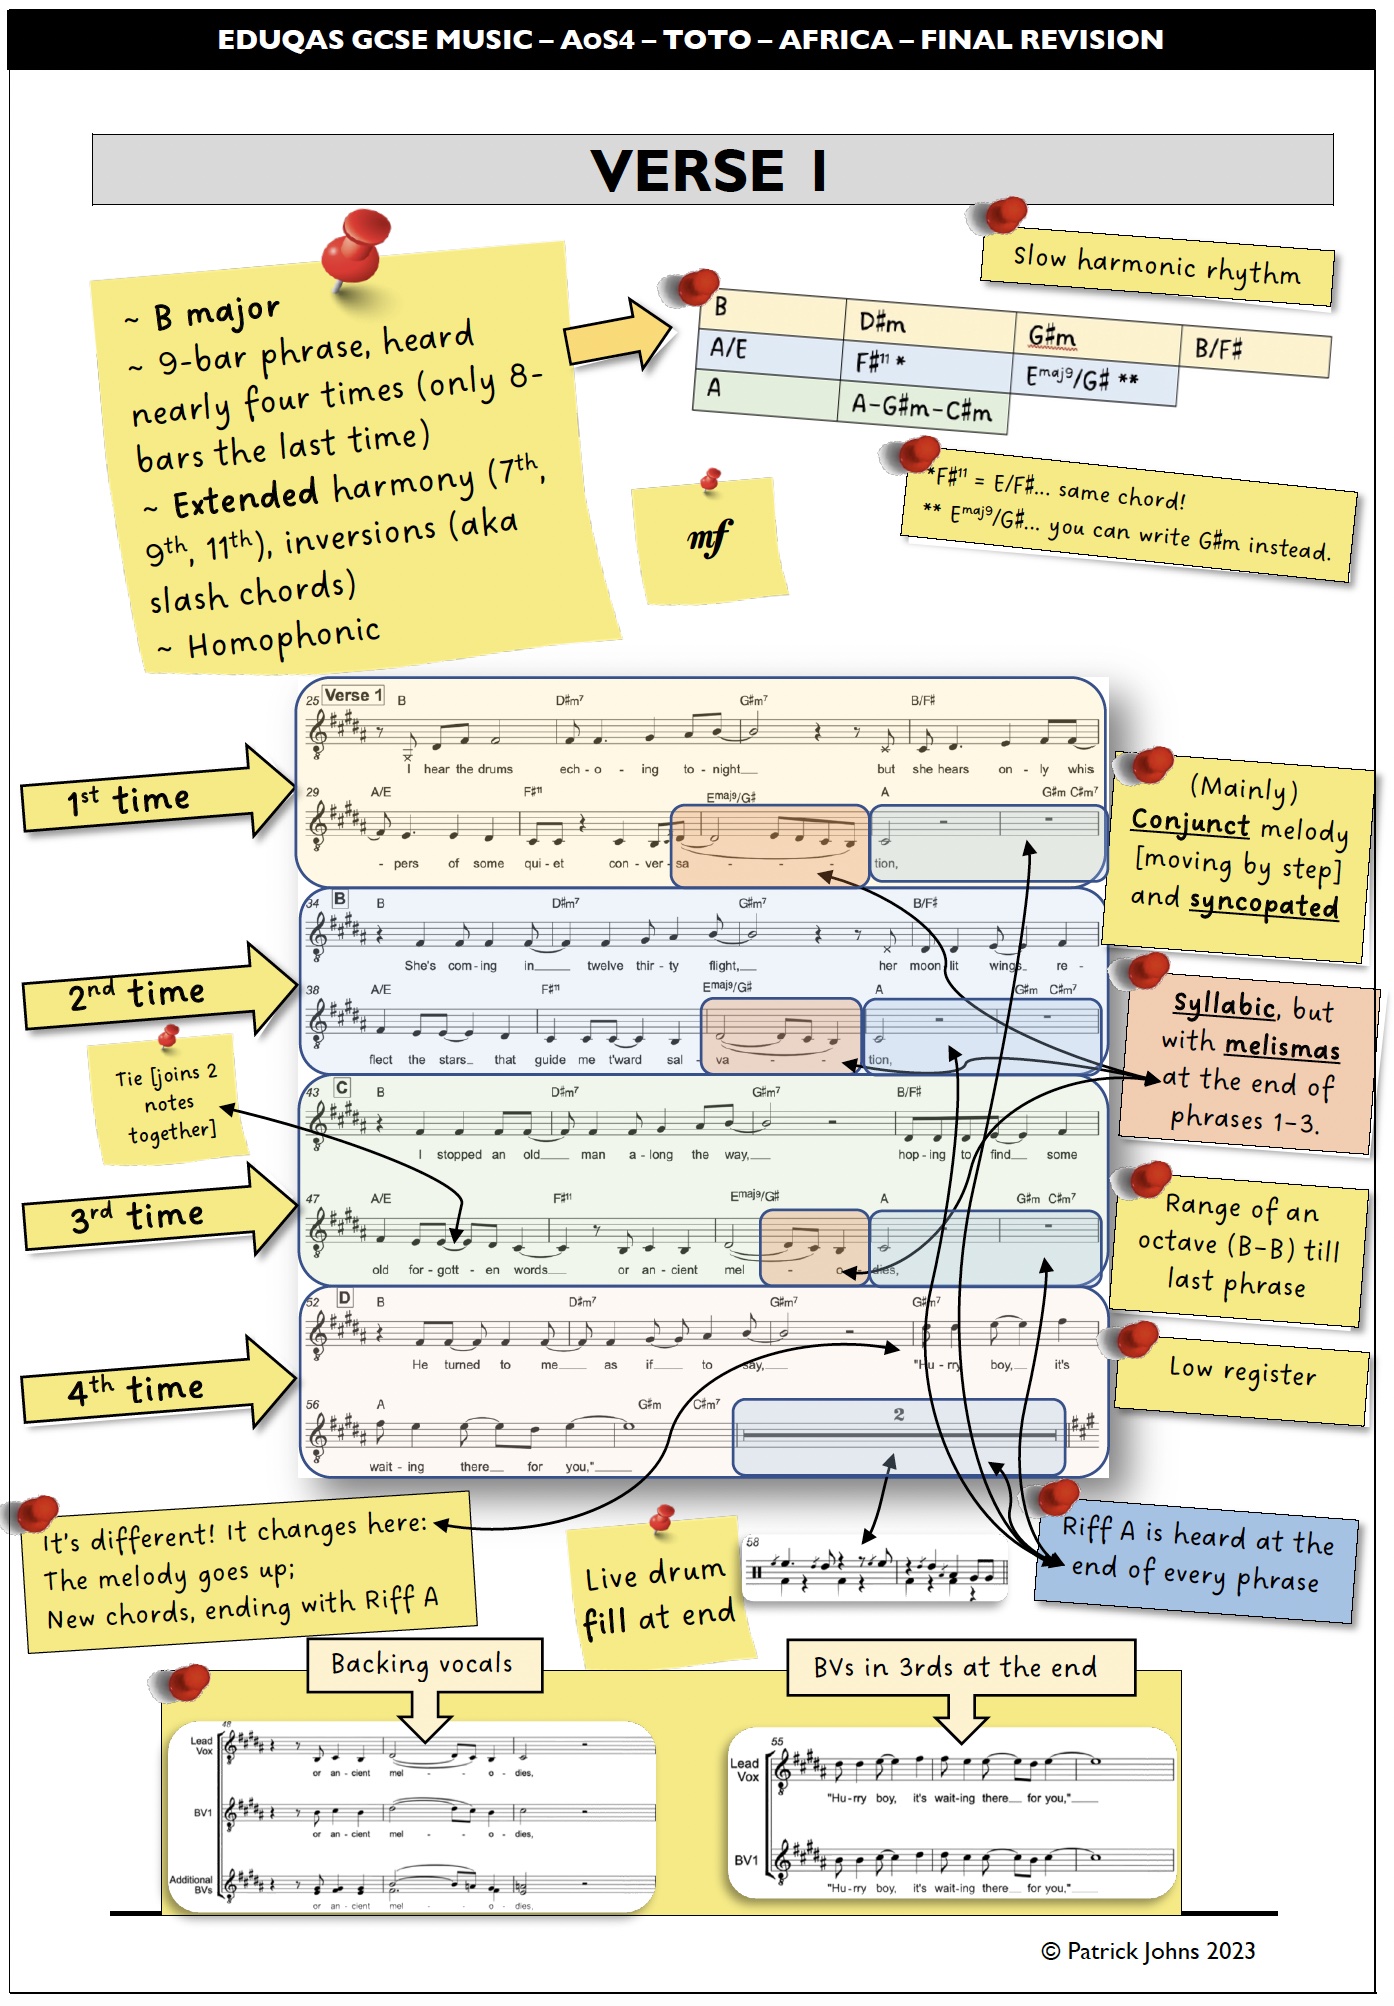 EDUQAS GCSE MUSIC – AoS4 – TOTO – AFRICA – FINAL REVISION
VERSE 1
~ B major
~ 9-bar phrase, heard
nearly four times (only 8-
bars the last time)
~ Extended harmony (7th,
9th, 11th), inversions (aka
slash chords)
~ Homophonic
Slow harmonic rhythm
B D#m G#m B/F#
A/E F#11 * Emaj9/G# **
A A-G#m-C#m
*F#11 = E/F#... same chord!
** Emaj9/G#... you can write G#m instead.
mf
1st time
2nd time
3rd time
4th time
25 Verse 1 B D#m7 G#m7 B/F#
I hear the drums ech - o - ing to - night__ but she hears on - ly whis
29 A/E F#11 Emaj9/G# A G#m C#m7
- pers of some qui - et con - ver - sa - - - tion,
34 B B D#m7 G#m7 B/F#
She's com - ing in____ twelve thir - ty flight,__ her moon lit wings_ re -
38 A/E F#11 Emaj9/G# A G#m C#m7
flect the stars_ that guide me t'ward sal - va - - - tion,
43 C B D#m7 G#m7 B/F#
I stopped an old___ man a - long the way,___ hop - ing to find___ some
47 A/E F#11 Emaj9/G# A G#m C#m7
old for - gott - en words___ or an - cient mel - o - dies,
52 D B D#m7 G#m7 G#m7
He turned to me___ as if___ to say,___ "Hu - rry boy,__ it's
56 A G#m C#m7 2
wait - ing there__ for you,"____
(Mainly)
Conjunct melody
[moving by step]
and syncopated
Syllabic, but
with melismas
at the end of
phrases 1-3.
Tie [joins 2
notes
together]
Range of an
octave (B-B) till
last phrase
Low register
It's different! It changes here:
The melody goes up;
New chords, ending with Riff A
Live drum
fill at end
58
Riff A is heard at the
end of every phrase
Backing vocals
48
Lead
Vox
or an - cient mel - - o - dies,
BV1
or an - cient mel - - o - dies,
Additional
BVs
or an - cient mel - - o - dies,
BVs in 3rds at the end
55
Lead
Vox
"Hu - rry boy, it's wait - ing there__ for you,"____
BV1
"Hu - rry boy, it's wait - ing there__ for you,"____
© Patrick Johns 2023